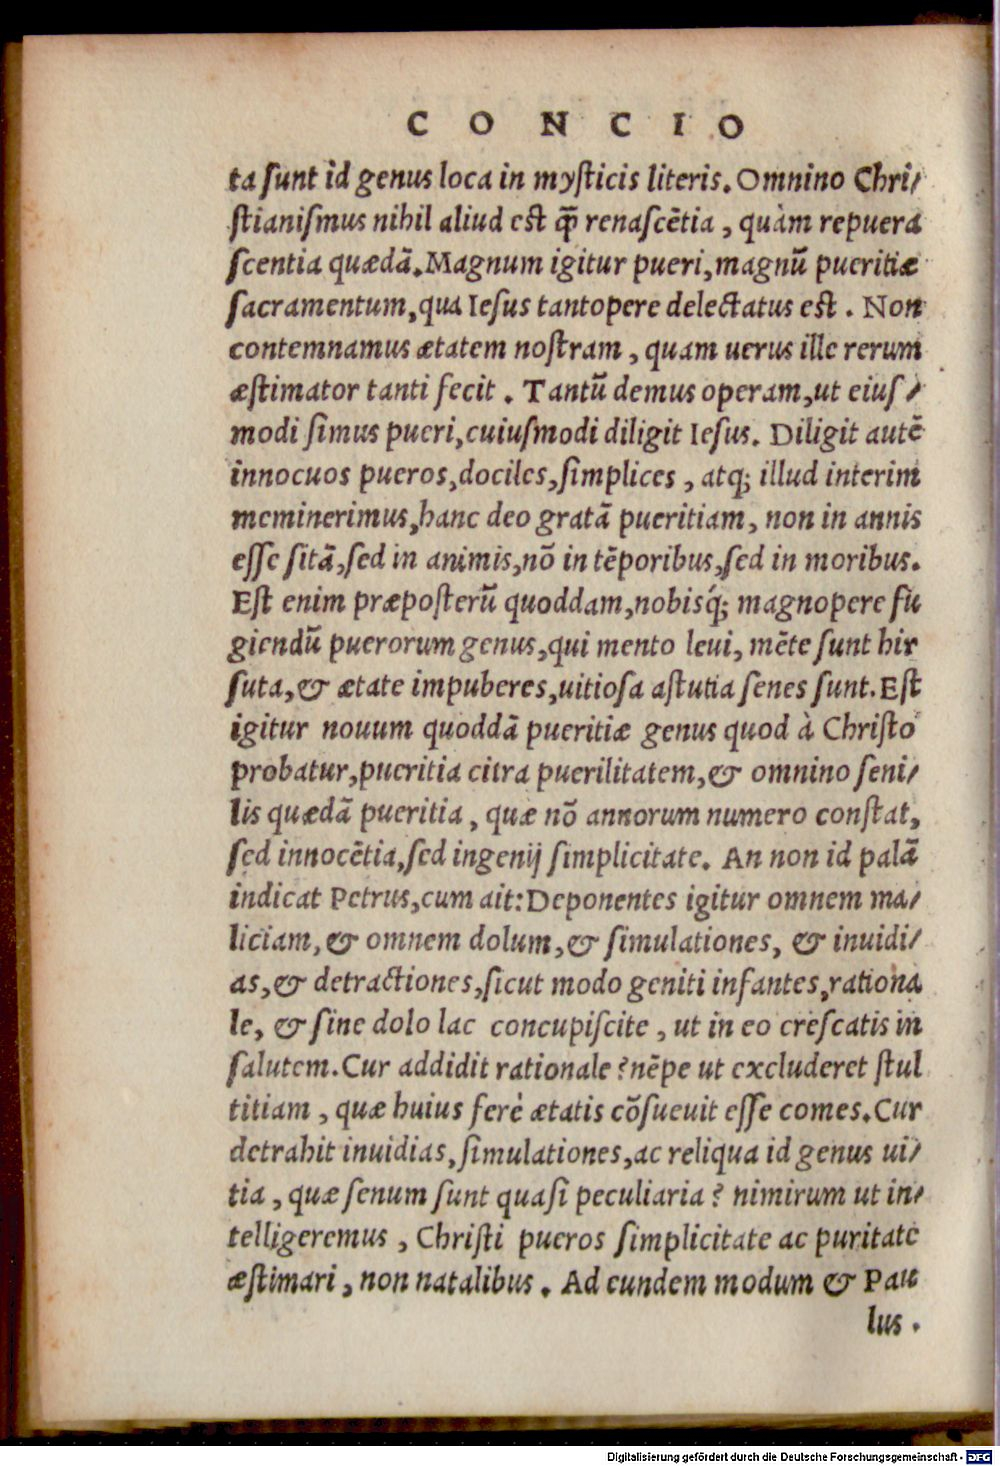 CONCIO
ta ſunt id genus loca in myſticis literis. Omnino Chri/
ſtianiſmus nihil aliud eſt q̃ renaſcẽtia, quàm repuera
ſcentia quædã. Magnum igitur pueri, magnũ pueritiæ
ſacramentum, qua Ieſus tantopere delectatus eſt. Non
contemnamus ætatem noſtram, quam uerus ille rerum
æſtimator tanti fecit. Tantũ demus operam, ut eiuſ/
modi ſimus pueri, cuiuſmodi diligit Ieſus. Diligit autẽ
innocuos pueros, dociles, ſimplices, atq; illud interim
meminerimus, hanc deo gratã pueritiam, non in annis
eſſe ſitã, ſed in animis, nõ in tẽporibus, ſed in moribus.
Eſt enim præpoſterũ quoddam, nobisq́; magnopere fu
giendũ puerorum genus, qui mento leui, mẽte ſunt hir
ſuta, & ætate impuberes, uitioſa aſtutia ſenes ſunt. Eſt
igitur nouum quoddã pueritiæ genus quod à Chriſto
probatur, pueritia citra puerilitatem, & omnino ſeni/
lis quædã pueritia, quæ nõ annorum numero conſtat,
ſed innocẽtia, ſed ingenij ſimplicitate. An non id palã
indicat Petrus, cum ait: Deponentes igitur omnem ma/
liciam, & omnem dolum, & ſimulationes, & inuidi/
as, & detractiones, ſicut modo geniti infantes, rationa
le, & ſine dolo lac concupiſcite, ut in eo creſcatis in
ſalutem. Cur addidit rationale? nẽpe ut excluderet ſtul
titiam, quæ huius ferè ætatis cõſueuit eſſe comes. Cur
detrahit inuidias, ſimulationes, ac reliqua id genus ui/
tia, quæ ſenum ſunt quaſi peculiaria? nimirum ut in/
telligeremus, Chriſti pueros ſimplicitate ac puritate
æſtimari, non natalibus. Ad eundem modum & Pau
lus.
Digitalisierung gefördert durch die Deutsche Forschungsgemeinschaft - DFG